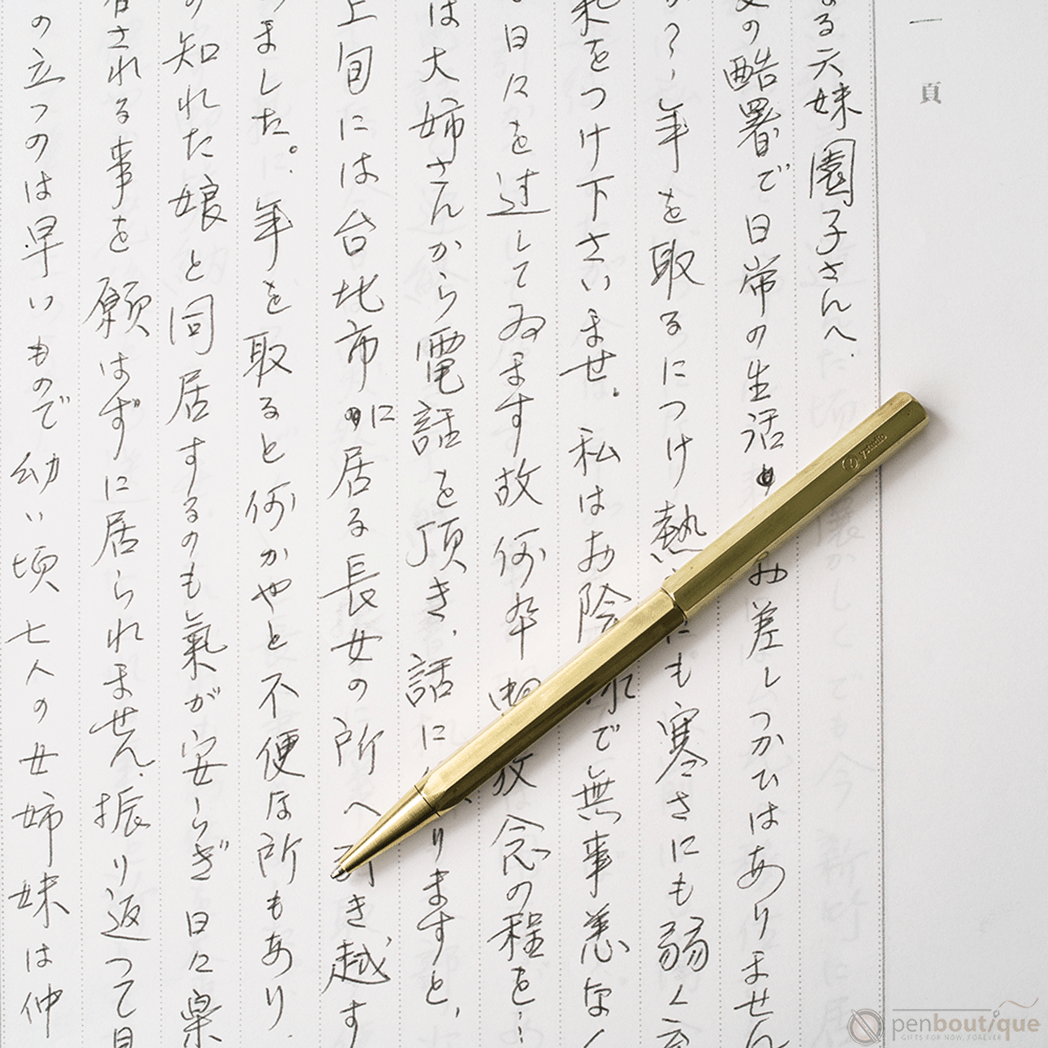 一頁
る六妹園子さんへ、
の酷署で日常の生活 お差しつかひはありません
か?、年を取るにつけ熱 にも寒さにも弱く
気をつけ下さいませ。私はお陰 で無事恙なく
日々を過してゐます故何卒 放念の程を…
は大姉さんから電話を頂き、話に りますと、
上旬には台北市に居る長女の所へ き越す
ました。年を取ると何かやと不便な所もあり
の知れた娘と同居するのも氣が安らぎ日々楽
される事を願はずに居られません、振り返つて見
の立つのは早いもので幼い頃七人の女姉妹は仲
ystudio
penboutique
GIFTS FOR NOW, FOREVER